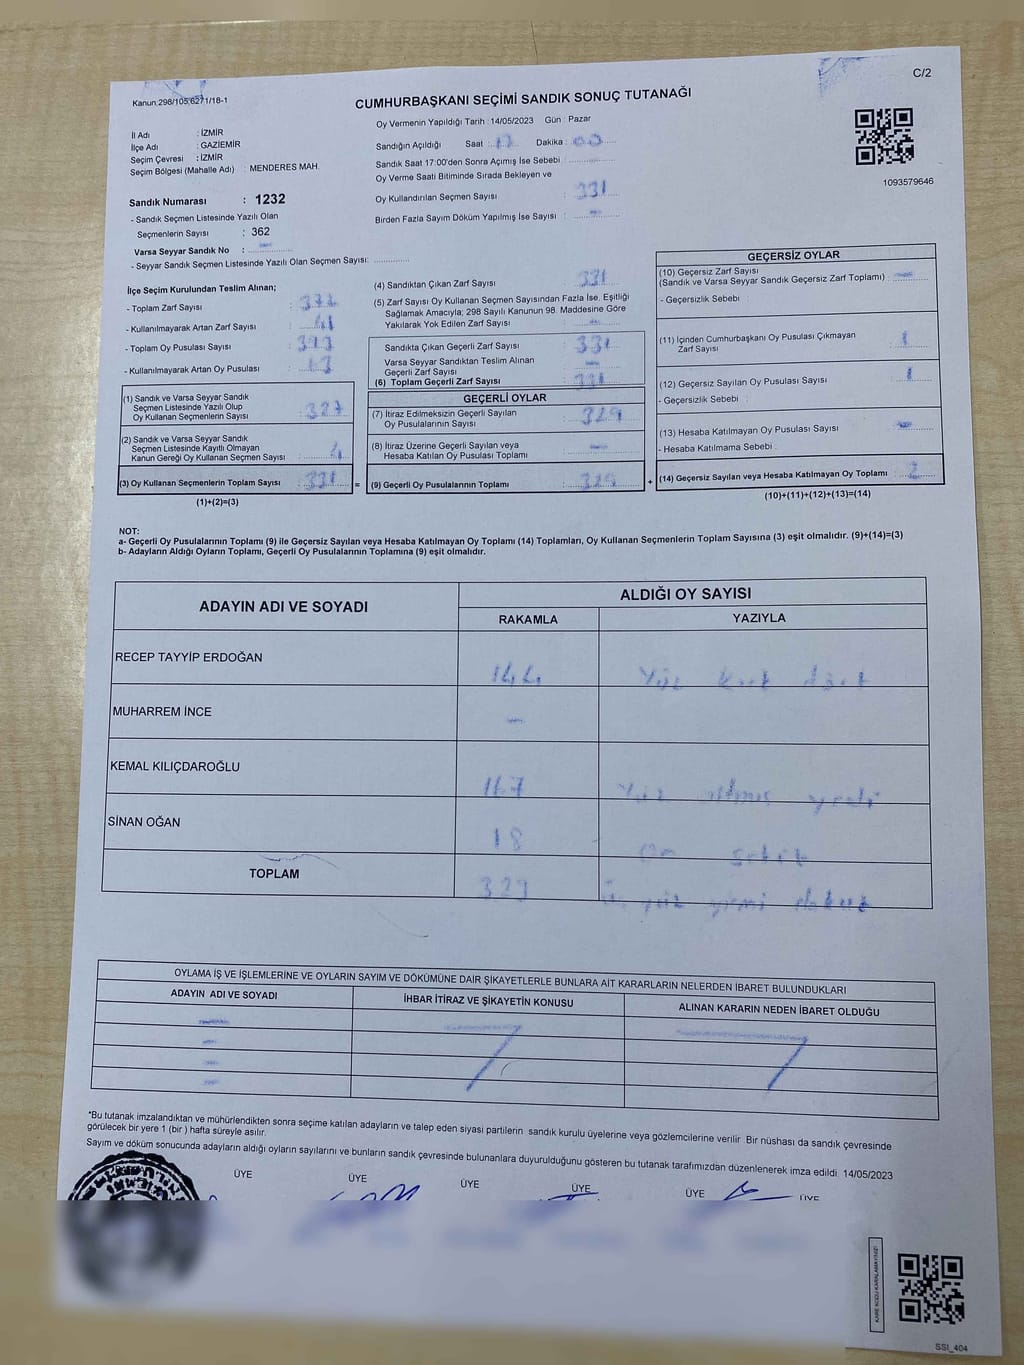 Kanun:298/105,6271/18-1
C/2
CUMHURBAŞKANI SEÇİMİ SANDIK SONUÇ TUTANAĞI
İl Adı : İZMİR
İlçe Adı : GAZİEMİR
Seçim Çevresi : İZMİR
Seçim Bölgesi (Mahalle Adı) : MENDERES MAH.
Sandık Numarası : 1232
- Sandık Seçmen Listesinde Yazılı Olan
Seçmenlerin Sayısı : 362
Varsa Seyyar Sandık No : -
- Seyyar Sandık Seçmen Listesinde Yazılı Olan Seçmen Sayısı:
Oy Vermenin Yapıldığı Tarih : 14/05/2023 Gün : Pazar
Sandığın Açıldığı Saat : 17 Dakika : 00
Sandık Saat 17:00'den Sonra Açımış İse Sebebi :
Oy Verme Saati Bitiminde Sırada Bekleyen ve
Oy Kullandırılan Seçmen Sayısı : 331
Birden Fazla Sayım Döküm Yapılmış İse Sayısı : -
1093579646
İlçe Seçim Kurulundan Teslim Alınan;
- Toplam Zarf Sayısı : 372
- Kullanılmayarak Artan Zarf Sayısı : 41
- Toplam Oy Pusulası Sayısı :
- Kullanılmayarak Artan Oy Pusulası :
(1) Sandık ve Varsa Seyyar Sandık
Seçmen Listesinde Yazılı Olup
Oy Kullanan Seçmenlerin Sayısı : 327
(2) Sandık ve Varsa Seyyar Sandık
Seçmen Listesinde Kayıtlı Olmayan
Kanun Gereği Oy Kullanan Seçmen Sayısı : 4
(3) Oy Kullanan Seçmenlerin Toplam Sayısı : 331
(1)+(2)=(3)
(4) Sandıktan Çıkan Zarf Sayısı : 331
(5) Zarf Sayısı Oy Kullanan Seçmen Sayısından Fazla İse, Eşitliği
Sağlamak Amacıyla; 298 Sayılı Kanunun 98. Maddesine Göre
Yakılarak Yok Edilen Zarf Sayısı : -
Sandıkta Çıkan Geçerli Zarf Sayısı : 331
Varsa Seyyar Sandıktan Teslim Alınan
Geçerli Zarf Sayısı : -
(6) Toplam Geçerli Zarf Sayısı : 331
GEÇERLİ OYLAR
(7) İtiraz Edilmeksizin Geçerli Sayılan
Oy Pusulalarının Sayısı : 329
(8) İtiraz Üzerine Geçerli Sayılan veya
Hesaba Katılan Oy Pusulası Toplamı : -
= (9) Geçerli Oy Pusulalarının Toplamı : 329 +
GEÇERSİZ OYLAR
(10) Geçersiz Zarf Sayısı
(Sandık ve Varsa Seyyar Sandık Geçersiz Zarf Toplamı) : -
- Geçersizlik Sebebi
(11) İçinden Cumhurbaşkanı Oy Pusulası Çıkmayan
Zarf Sayısı : 1
(12) Geçersiz Sayılan Oy Pusulası Sayısı : 1
- Geçersizlik Sebebi :
(13) Hesaba Katılmayan Oy Pusulası Sayısı : -
- Hesaba Katılmama Sebebi :
(14) Geçersiz Sayılan veya Hesaba Katılmayan Oy Toplamı : 2
(10)+(11)+(12)+(13)=(14)
NOT:
a- Geçerli Oy Pusulalarının Toplamı (9) ile Geçersiz Sayılan veya Hesaba Katılmayan Oy Toplamı (14) Toplamları, Oy Kullanan Seçmenlerin Toplam Sayısına (3) eşit olmalıdır. (9)+(14)=(3)
b- Adayların Aldığı Oyların Toplamı, Geçerli Oy Pusulalarının Toplamına (9) eşit olmalıdır.
ADAYIN ADI VE SOYADI ALDIĞI OY SAYISI
RAKAMLA YAZIYLA
RECEP TAYYİP ERDOĞAN 144 Yüz kırk dört
MUHARREM İNCE -
KEMAL KILIÇDAROĞLU 167 Yüz altmış yedi
SİNAN OĞAN 18 On sekiz
TOPLAM 329 Üç yüz yirmi dokuz
OYLAMA İŞ VE İŞLEMLERİNE VE OYLARIN SAYIM VE DÖKÜMÜNE DAİR ŞİKAYETLERLE BUNLARA AİT KARARLARIN NELERDEN İBARET BULUNDUKLARI
ADAYIN ADI VE SOYADI İHBAR İTİRAZ VE ŞİKAYETİN KONUSU ALINAN KARARIN NEDEN İBARET OLDUĞU
*Bu tutanak imzalandıktan ve mühürlendikten sonra seçime katılan adayların ve talep eden siyasi partilerin sandık kurulu üyelerine veya gözlemcilerine verilir Bir nüshası da sandık çevresinde
görülecek bir yere 1 (bir ) hafta süreyle asılır.
Sayım ve döküm sonucunda adayların aldığı oyların sayılarını ve bunların sandık çevresinde bulunanlara duyurulduğunu gösteren bu tutanak tarafımızdan düzenlenerek imza edildi 14/05/2023
ÜYE ÜYE ÜYE ÜYE ÜYE ÜYE
KARE KODU KARALAMAYINIZ!
SSI_404